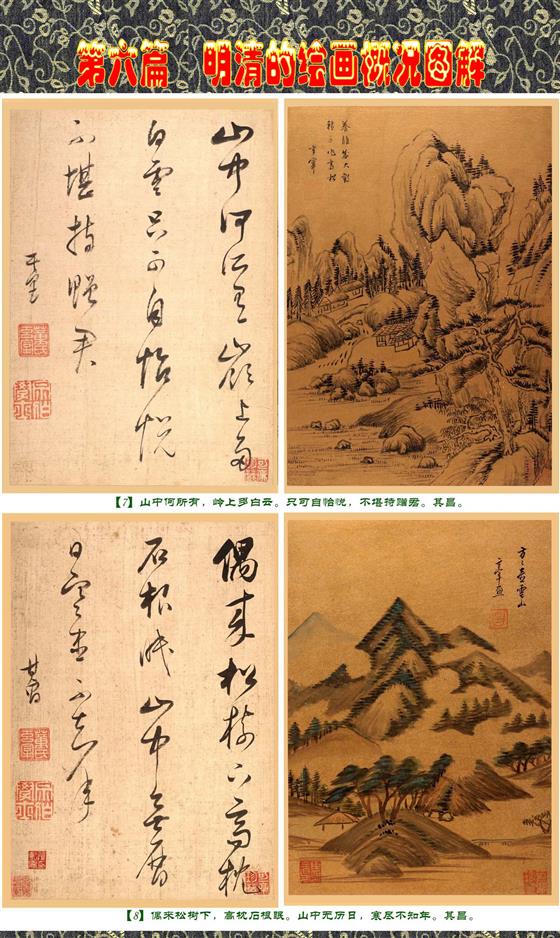 第六篇 明清的绘画概况图解
山中何所有嶺上多
白雲只可自怡悦
不堪持贈君
其昌
玄宰
【7】山中何所有，岭上多白云。只可自怡悦，不堪持赠君。其昌。
偶来松樹下高枕
石根眠山中無曆
日寒盡不知年
其昌
方方壺雲山
玄宰画
【8】偶来松树下，高枕石根眠。山中无历日，寒尽不知年。其昌。